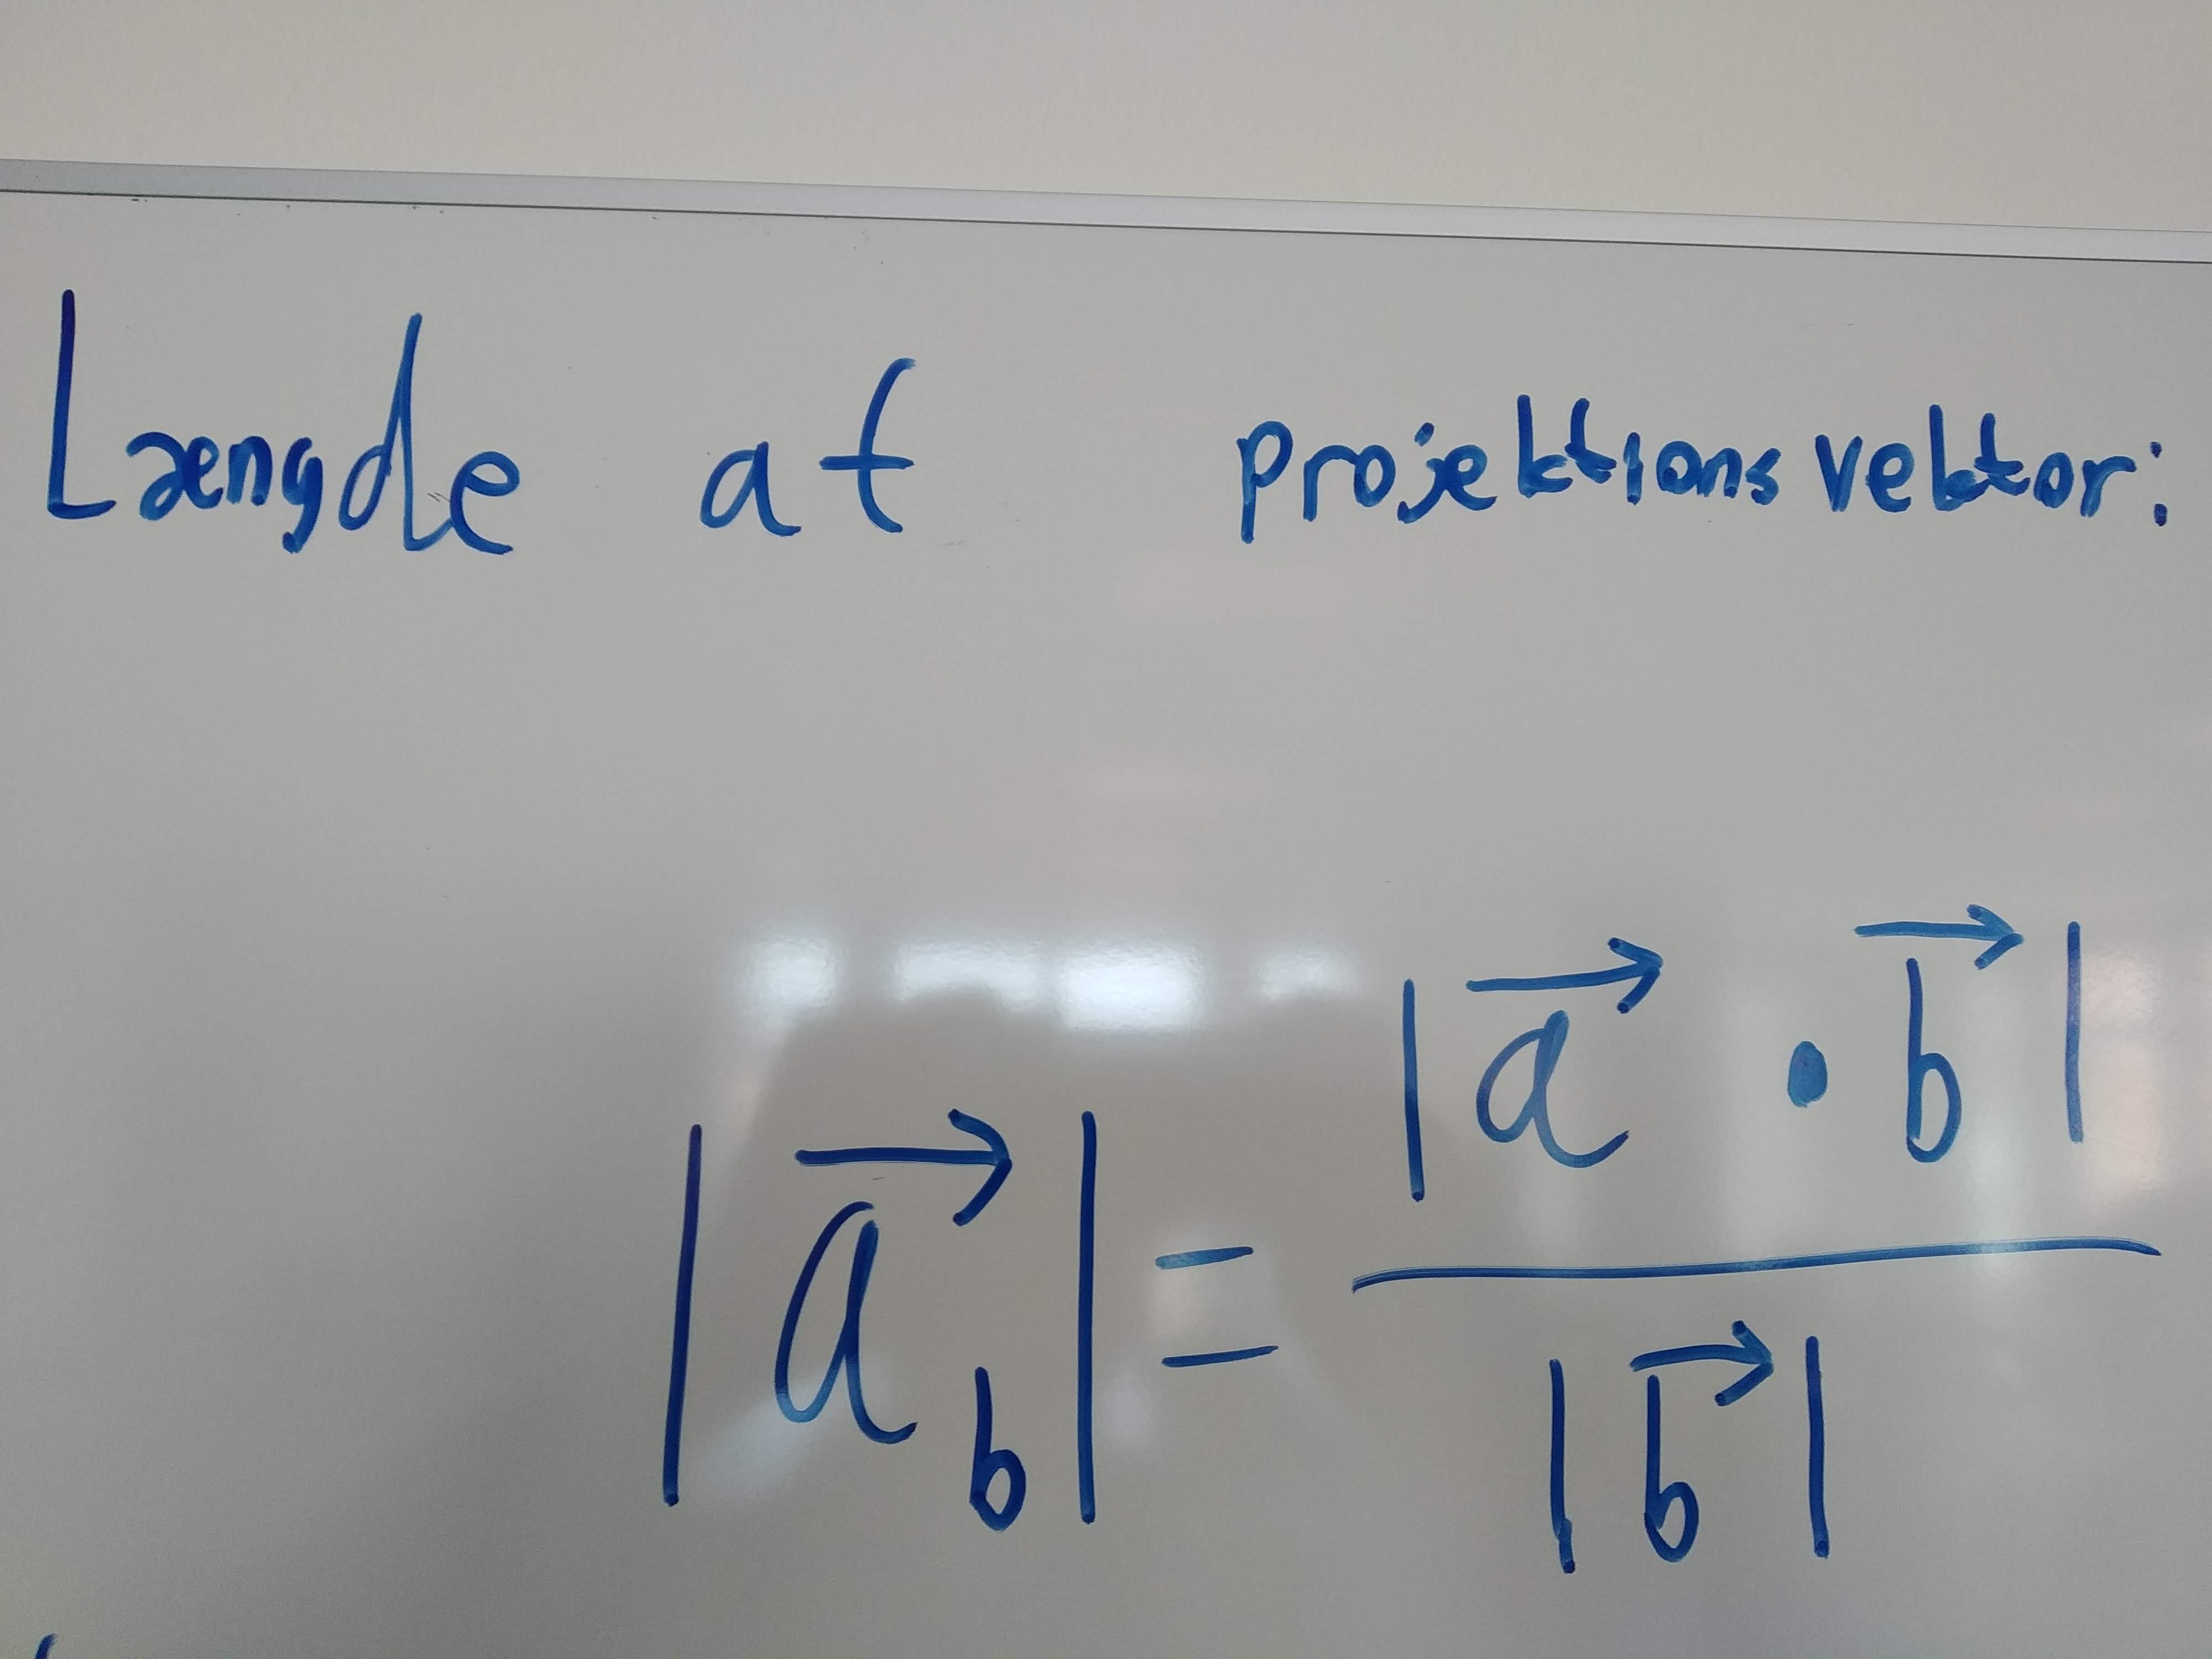 Længde af projektionsvektor:
|\vec{a}_b| = \frac{|\vec{a} \cdot \vec{b}|}{|\vec{b}|}